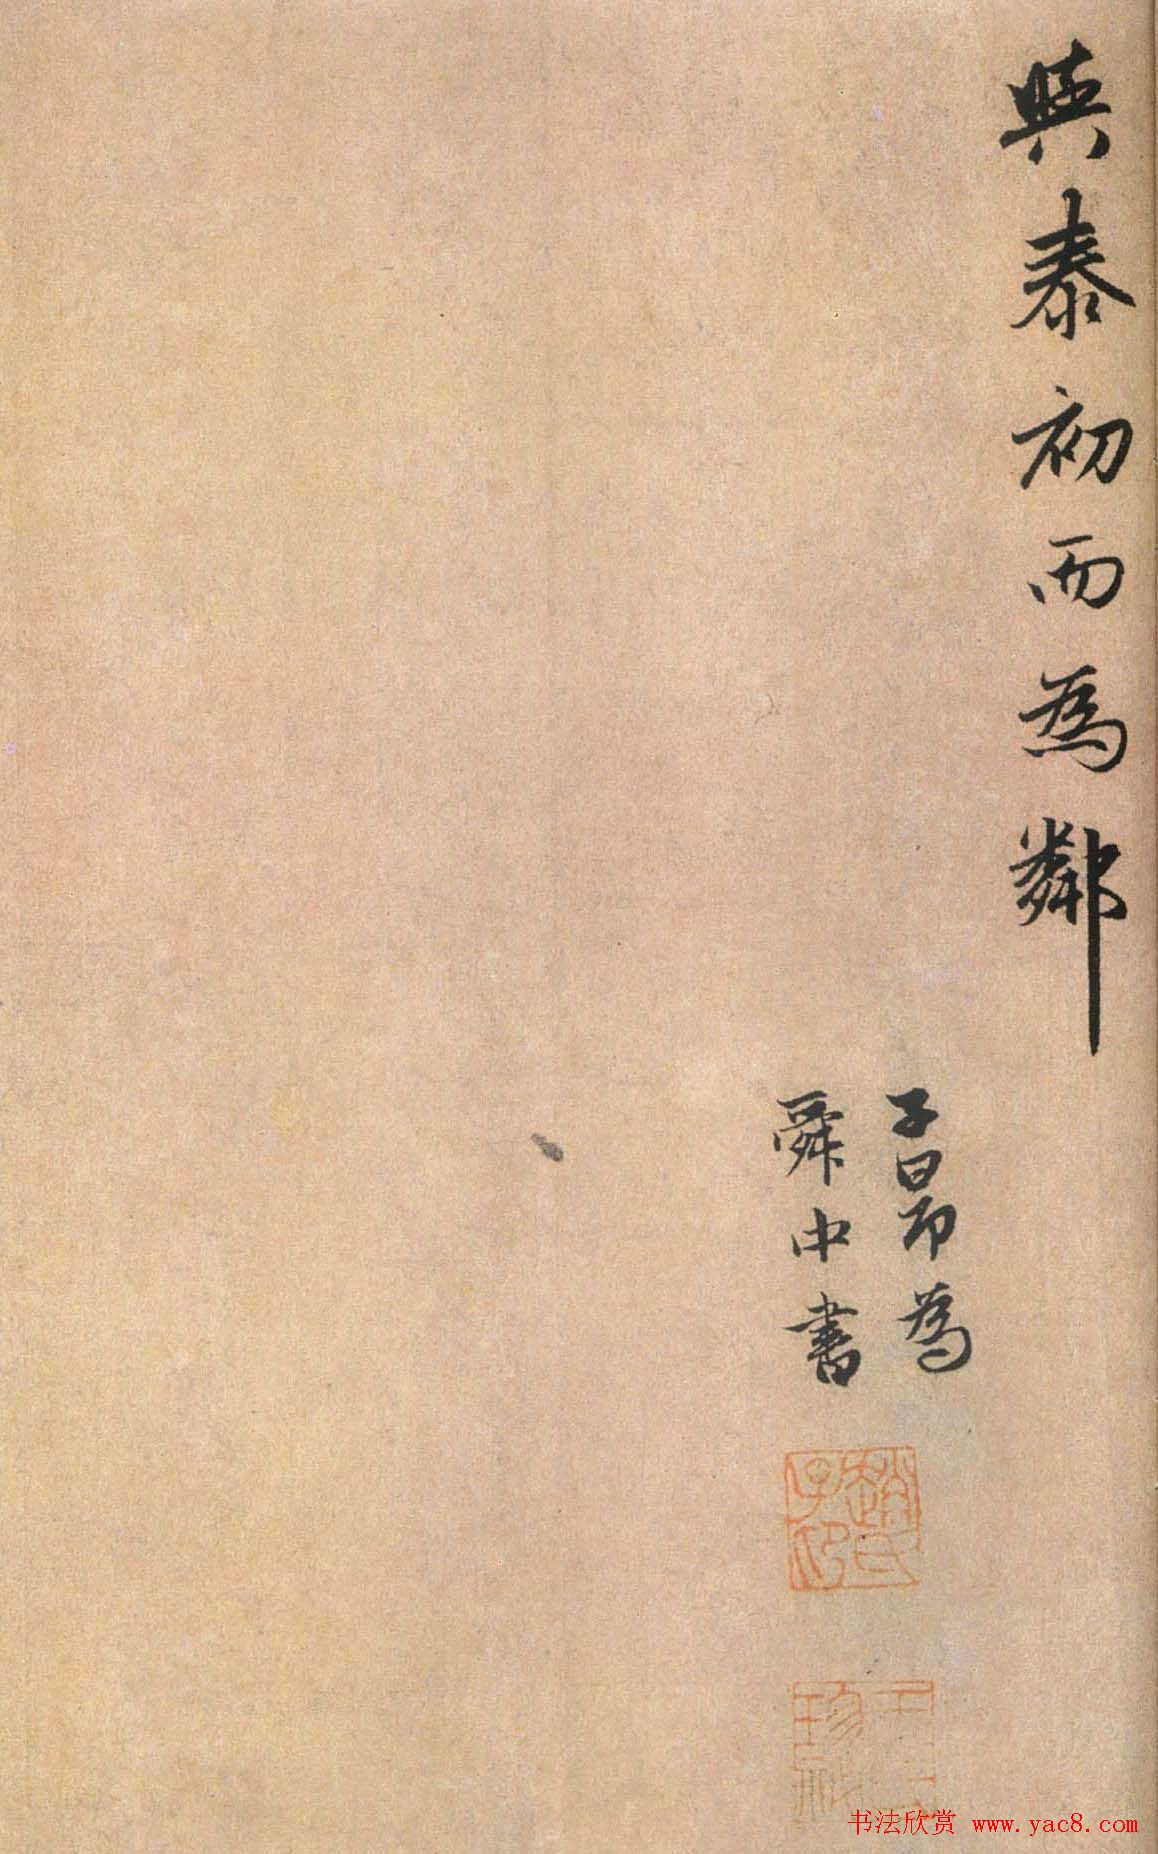 與泰初而為鄰
子昂為
舜中書
趙氏子印
书法欣赏 www.yac8.com